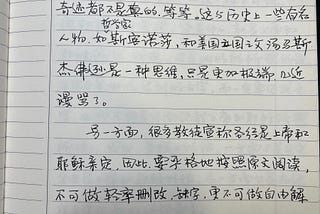 奇迹都不是真的,等等。这与历史上一些有名
哲学家
人物,如斯宾诺莎,和美国立国之父汤马斯
杰佛逊是一种思维,只是更加极端,几近
谩骂了。
另一方面,很多教徒宣称圣经是上帝和
耶稣亲定,因此,要严格地按照原文阅读,
不可做轻率删改,缺字,更不可做自由解